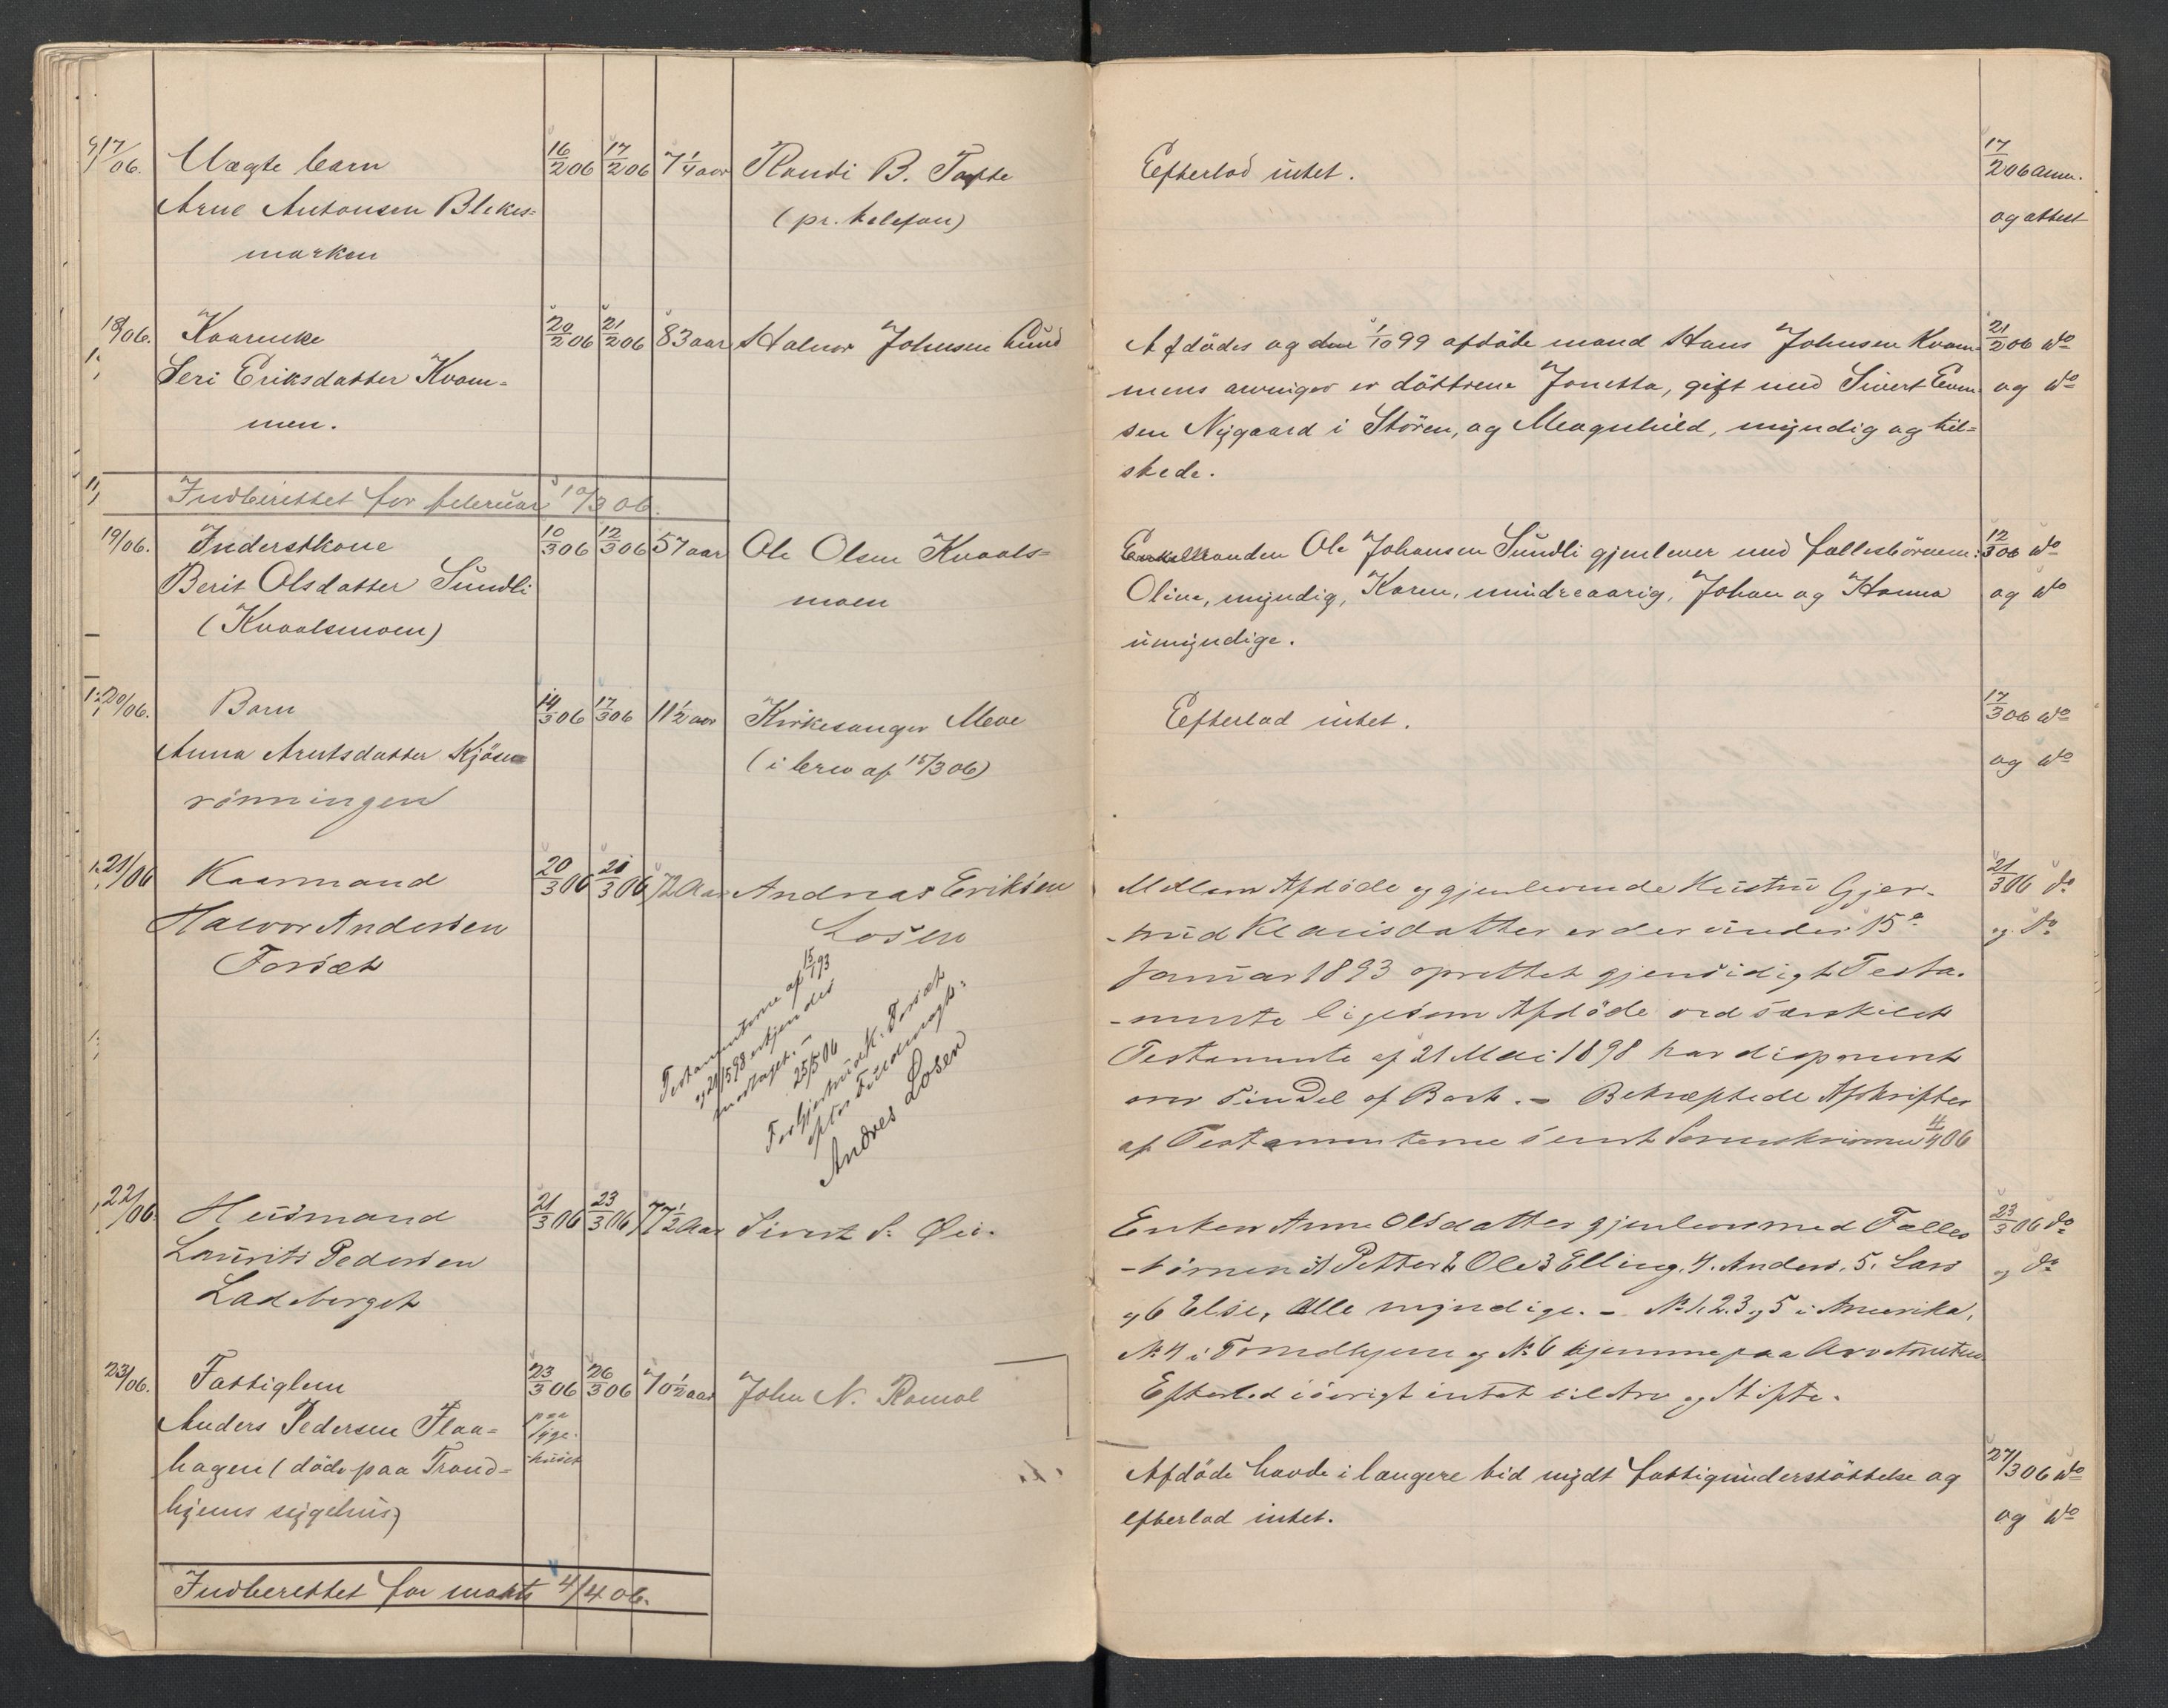 17/06. Uægte barn 16/2 06 17/2 06 7 1/4 aar Randi B. Tofte
Arne Antonsen Blekes=
(pr. telefon)
marken
18/06. Kaarenke 20/2 06 21/2 06 83 aar Halvor Johnsen Lund
Seri Eriksdatter Kvam=
men.
Indberettet for februar 10/3 06.
19/06. Inderstkone 10/3 06 12/3 06 57 aar Ole Olsen Kvaals=
Berit Olsdatter Sundli
moen
(Kvaalsmoen)
20/06. Barn 14/3 06 17/3 06 11 1/2 aar Kirkesanger Moe
Anna Arntsdatter Kjösen
(i brev af 15/3 06)
rönningen
21/06 Kaarmand 20/3 06 21/3 06 72 Aar Andreas Eriksen
Losen
Halvor Andersen
Forsæt
Testamenterne af 15/1 93
og 21/5 98 erkjendes
modtaget. -
25/5 06
For Gjertrud K. Forsæt
efter Fuldmagt:
Andres Losen
22/06. Husmand 21/3 06 23/3 06 77 1/2 Aar Sivert S. Øie.
Laurits Pedersen
Ladeberget
23/06. Fattiglem 23/3 06 26/3 06 70 1/2 aar John N. Ramol
Anders Pedersen Flaa=
paa syge-huset
hagen (döde paa Trond=
hjems sygehus)
Indberettet for marts 4/4 06.
Efterlod intet. 17/2 06 anm.
og attest
Afdödes og den 1/10 99 afdöde mand Hans Johnsen Kvam= 21/2 06 do
mens arvinger er döttrene Jonetta, gift med Sivert Even= og do
sen Nygaard i Stören, og Magnhild, myndig og til=
stede.
Enkemanden Ole Johansen Sundli gjenlever med fællesbörnene: 12/3 06 do
Oline, myndig, Karen, mindreaarig, Johan og Hanna og do
umyndige.
Efterlod intet. 17/3 06 do
og do
Mellem Afdöde og gjenlevende Hustru Gjer- 21/3 06 do
-trud Klausdatter er der under 15de og do
Januar 1893 oprettet gjensidigt Testa-
-mente ligesom Afdöde ved særskilt
Testamente af 21 Mai 1898 har disponeret
over sin Del af Boet. - Bekræftede Afskrifter
af Testamenterne sendt Sorenskriveren 4/4 06
Enken Anne Olsdatter gjenlever med Fælles 23/3 06 do
-börnene 1 Petter 2 Ole 3 Elling, 4. Anders, 5. Lars og do
og 6 Else, Alle myndige. - No 1, 2, 3 og 5 i Amerika,
No 4 i Trondhjem og No 6 hjemme paa Arvetomten.
Efterlod iövrigt intet til Arv og Skifte.
Afdöde havde i længere tid nydt fattigunderstöttelse og 27/3 06 do
efterlod intet. og do